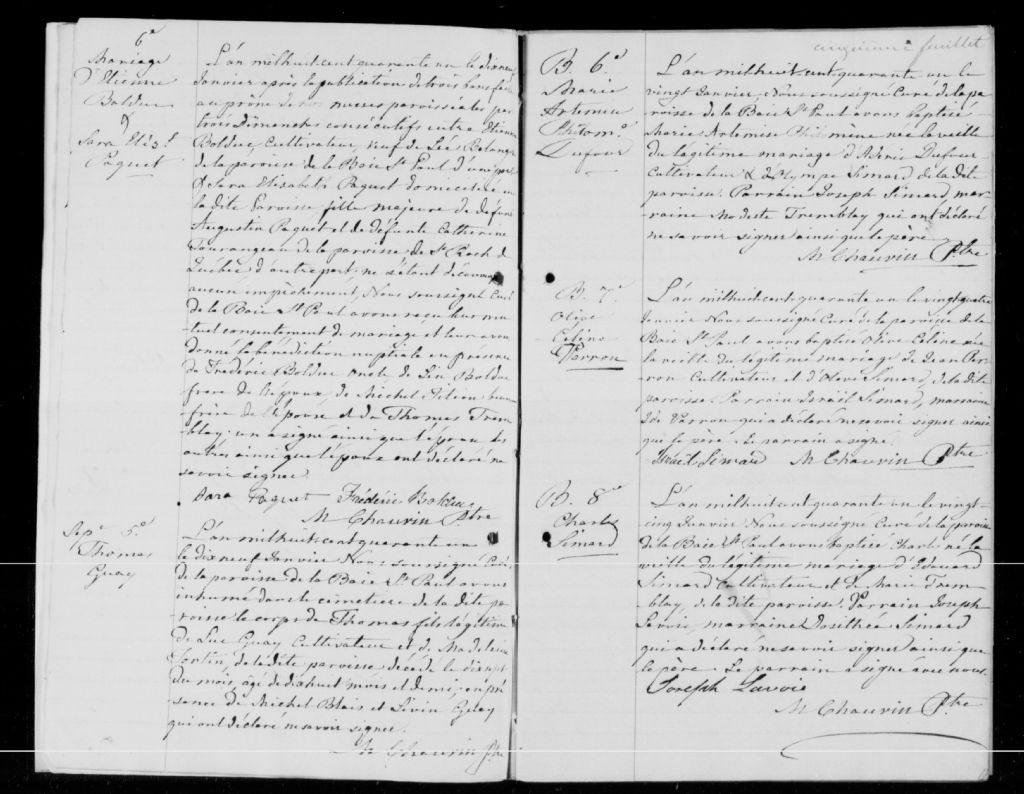 6e
Mariage
D'Etienne
Bolduc
&
Sara Elizt
Paquet
L'an milhuit cent quarante un le dixneuf
Janvier après la publication de trois bans faite
au prône de nos messes paroissiales par
trois Dimanches consécutifs entre Etienne
Bolduc, Cultivateur, veuf de Luce Belanger
de la paroisse de la Baie St Paul d'une part
& Sara Elisabeth Paquet domiciliée en
la dite Paroisse fille majeure de défunt
Augustin Paquet et de défunte Catherine
Tourangeau de la paroisse de St Roch de
Québec d'autre part: ne s'étant découvert
aucun empêchement, Nous soussigné Curé
de la Baie St Paul avons reçu leur mu-
-tuel consentement de mariage et leur avons
donné la bénédiction nuptiale en présence
de Frédéric Bolduc oncle de Bolduc
frère de l'époux, de Michel beau
-frère de l'épouse et de Thomas Trem-
-blay: un a signé ainsi que l'épouse les
autres ainsi que l'époux ont déclaré ne
savoir signer.
Sara Paquet Frédéric Bolduc
M Chauvin Ptre
Sepe 5e
Thomas
Guay
L'an milhuit cent quarante un
le dixneuf Janvier Nous soussigné Curé
de la paroisse de la Baie St Paul avons
inhumé dans le cimetière de la dite pa-
roisse le corps de Thomas fils légitime
de Luc Guay Cultivateur et de Madeleine
Fortin, de la dite paroisse décédé le dixsept
du mois, agé de dixhuit mois et demi: en pré
sence de Michel Blais et Guay
qui ont déclaré ne savoir signer.
M Chauvin Ptre
cinquième feuillet
B. 6e
Marie
Artemise
Philome
Dufour
L'an milhuit cent quarante un le
vingt Janvier Nous soussigné Curé de la pa-
roisse de la Baie St Paul avons baptisé
Marie Artemise Philomène née la veille
du légitime mariage d'Aderic Dufour
Cultivateur & d'Olympe Simard de la dite
paroisse. Parrain Joseph Simard, mar-
raine Modeste Tremblay qui ont déclaré
ne savoir signer ainsi que le père.
M Chauvin Ptre
B. 7e
Olive
Celina
Perron
L'an milhuit cent quarante un le vingt quatre
Janvier Nous soussigné Curé de la paroisse de la
Baie St Paul avons baptisé Olive Celina née
la veille du légitime mariage de Jean Per-
ron Cultivateur et d'Olive Simard, de la dite
paroisse. Parrain Israïl Simard, marraine
Perron qui a déclaré ne savoir signer ainsi
que le père. Le parrain a signé.
Israïl Simard M Chauvin Ptre
B. 8e
Charles
Simard
L'an milhuit cent quarante un le vingt-
cinq Janvier Nous soussigné Curé de la paroisse
de la Baie St Paul avons baptisé Charles né la
veille du légitime mariage d'Edouard
Simard Cultivateur et de Marie Trem-
blay, de la dite paroisse. Parrain Joseph
Lavoie, marraine Dosithée Simard
qui a déclaré ne savoir signer ainsi que
le père. Le parrain a signé avec nous.
Joseph Lavoie
M Chauvin Ptre